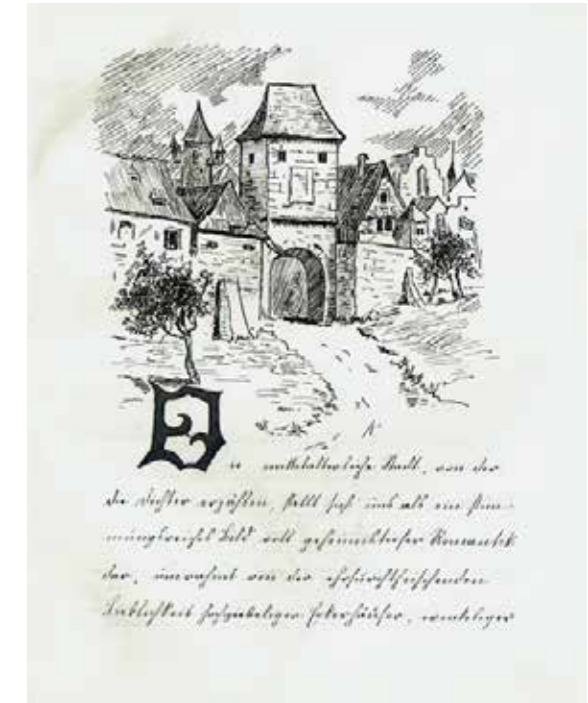 Die mittelalterliche Stadt, von der
die Dichter erzählen, stellt sich uns als ein stim-
mungsreiches Bild voll geheimnistiefer Romantik
dar, umrahmt von der ehrfurchtheischenden
Lieblichkeit hochgiebeliger Erkerhäuser, winkeliger